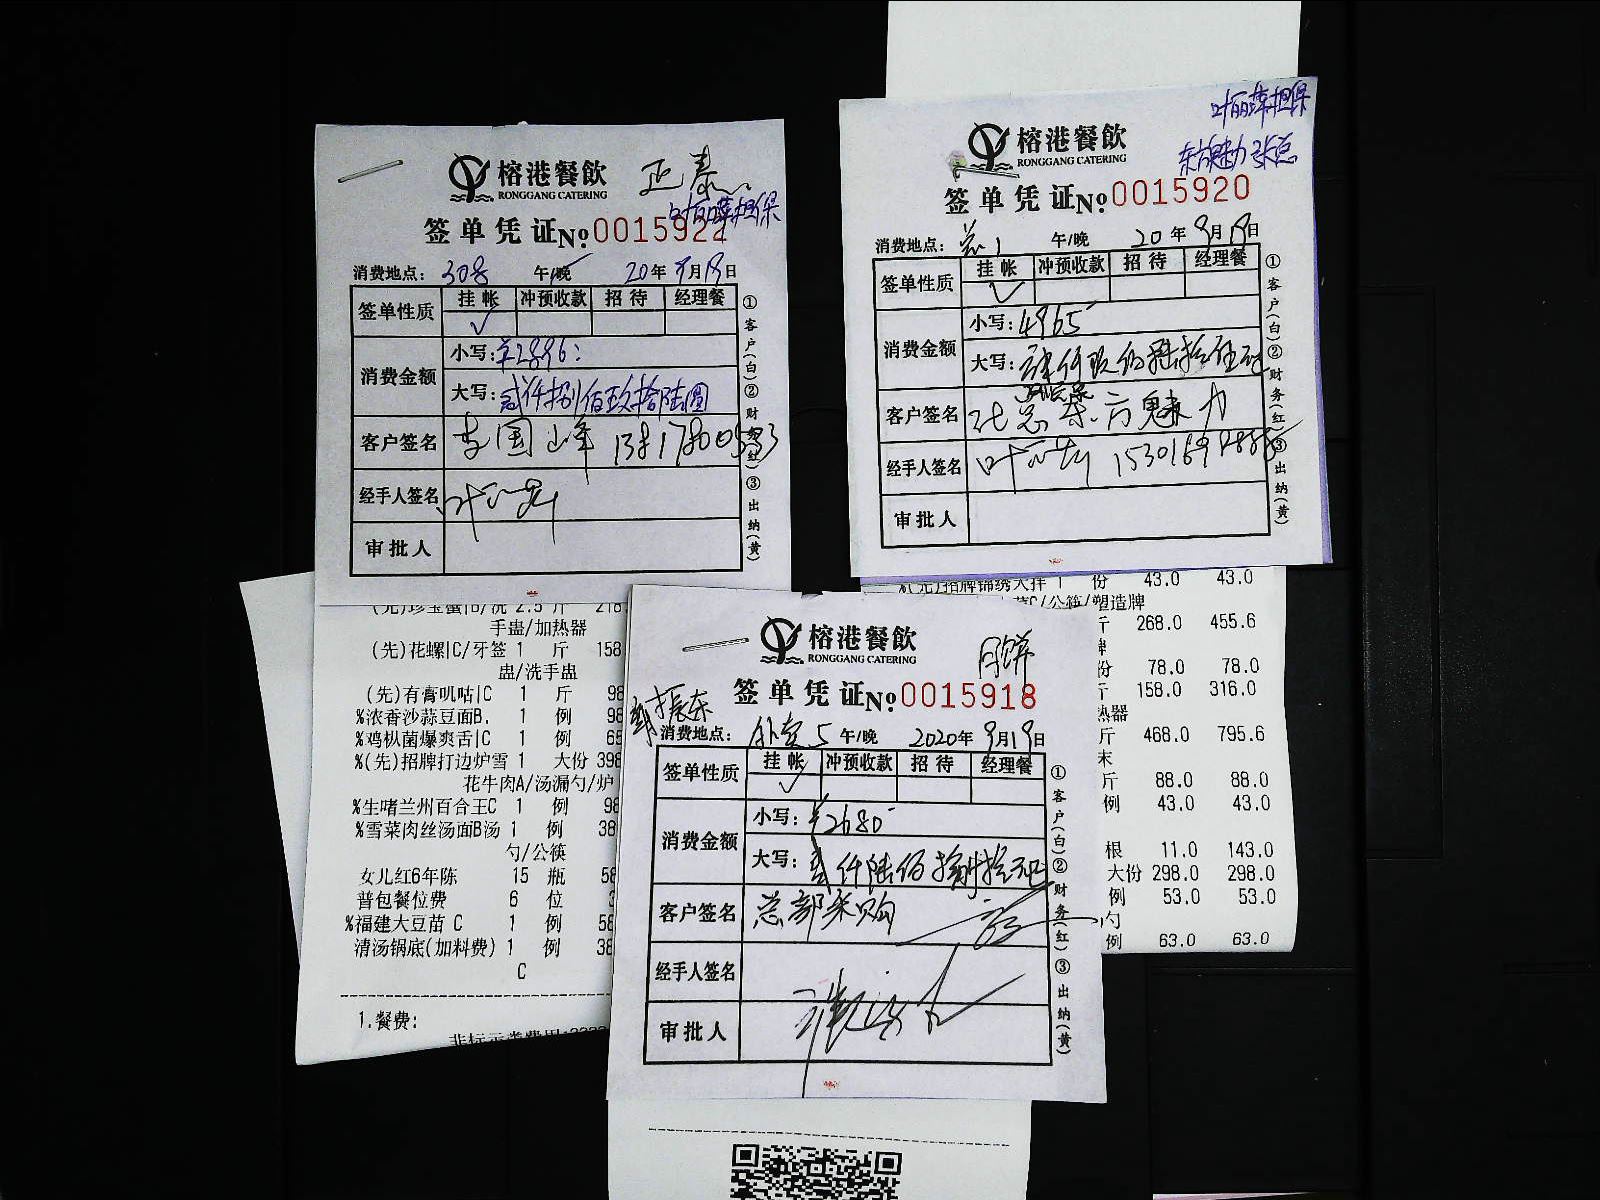 榕港餐飲
RONGGANG CATERING
正泰
担保
签单凭证 No: 0015922
消费地点: 308 午/晚 20年9月19日
签单性质 挂帐 冲预收款 招待 经理餐
✓
消费金额 小写: ¥2896:
大写: 贰仟捌佰玖拾陆圆
客户签名 李国峰
经手人签名
审批人
①客户(白)②财务(红)③出纳(黄)
担保
东方魅力 张总
榕港餐飲
RONGGANG CATERING
签单凭证 No: 0015920
消费地点: 午/晚 20年9月19日
签单性质 挂帐 冲预收款 招待 经理餐
✓
消费金额 小写: 4965
大写:
客户签名 张总 东方魅力
经手人签名
审批人
①客户(白)②财务(红)③出纳(黄)
榕港餐飲
RONGGANG CATERING
月饼
签单凭证 No: 0015918
振东
消费地点: 外卖5 午/晚 2020年9月19日
签单性质 挂帐 冲预收款 招待 经理餐
✓
消费金额 小写: ¥2680
大写: 贰仟陆佰捌拾元正
客户签名 总部采购
经手人签名
审批人
①客户(白)②财务(红)③出纳(黄)
手蛊/加热器
(先)花螺|C/牙签 1 斤 158
蛊/洗手蛊
(先)有膏叽咕|C 1 斤 98
%浓香沙蒜豆面B. 1 例 98
%鸡枞菌爆爽舌|C 1 例 65
%(先)招牌打边炉雪 1 大份 398
花牛肉A/汤漏勺/炉
%生啫兰州百合王C 1 例 98
%雪菜肉丝汤面B汤 1 例 38
勺/公筷
女儿红6年陈 15 瓶 58
普包餐位费 6 位 3
%福建大豆苗 C 1 例 58
清汤锅底(加料费) 1 例 38
C
1.餐费:
%(先)招牌锦绣大拌 1 份 43.0 43.0
C/公筷/塑造牌
斤 268.0 455.6
牌
份 78.0 78.0
斤 158.0 316.0
热器
斤 468.0 795.6
末
斤 88.0 88.0
例 43.0 43.0
根 11.0 143.0
大份 298.0 298.0
例 53.0 53.0
勺
例 63.0 63.0